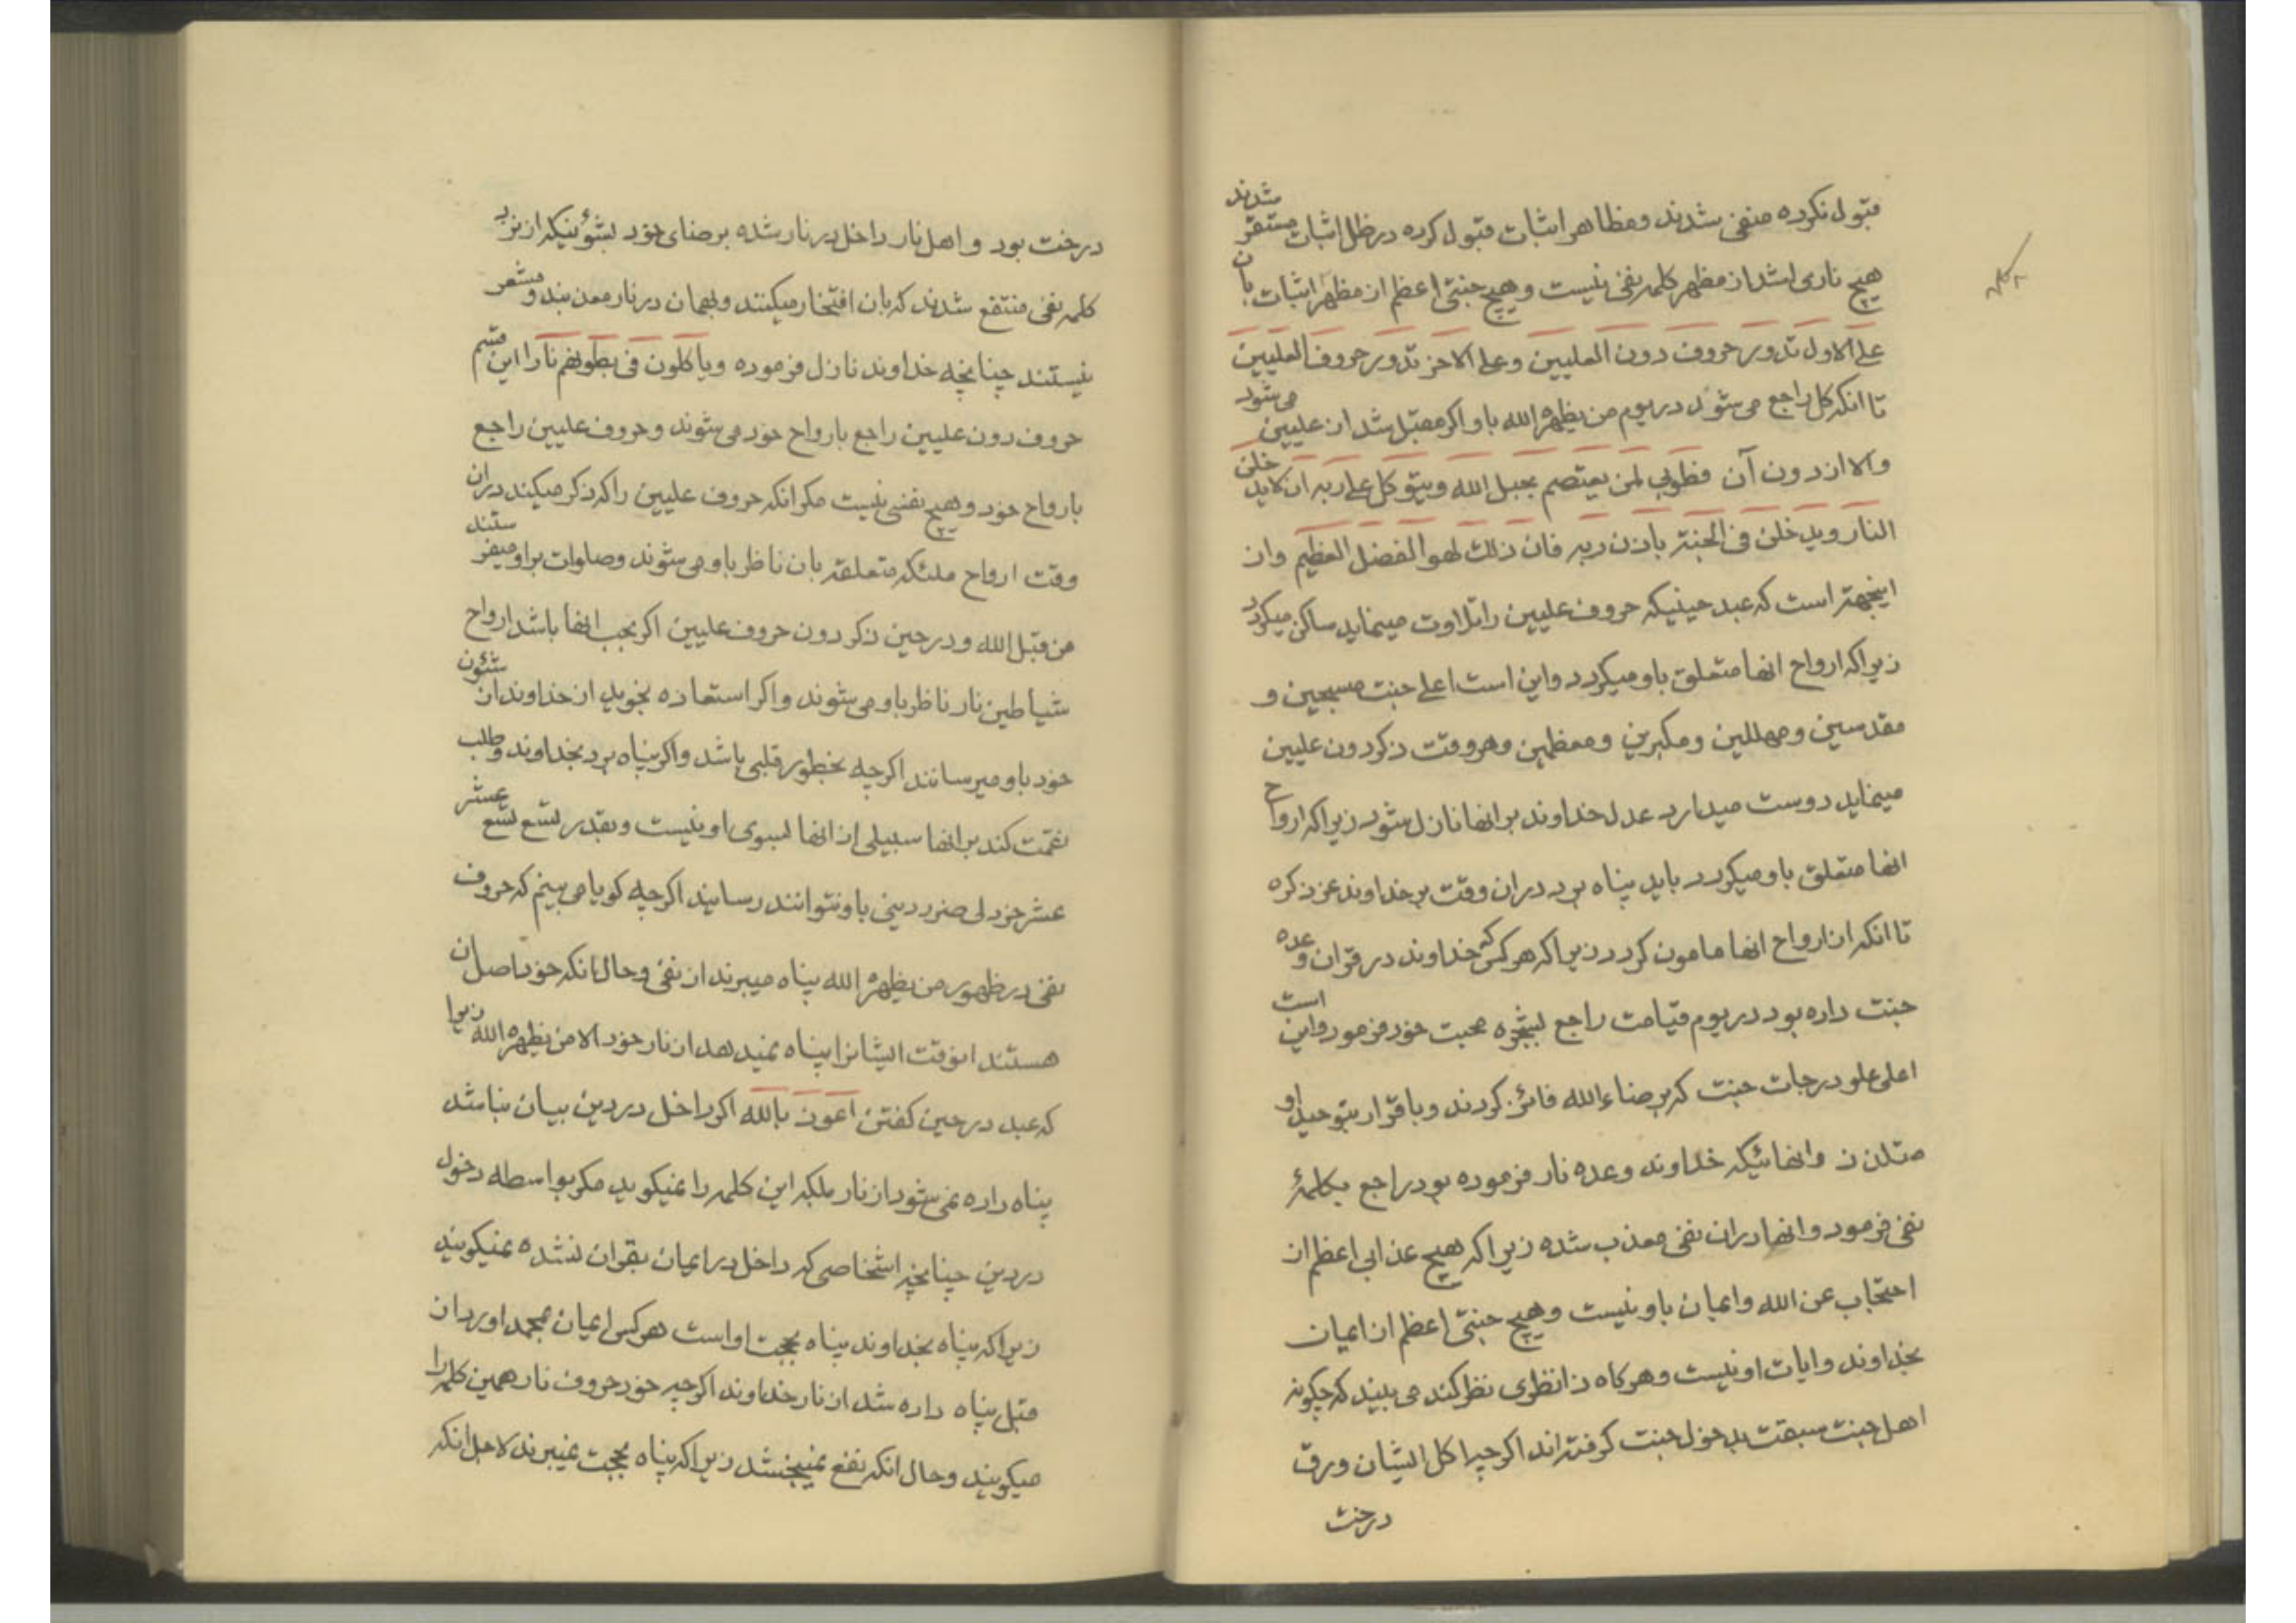 قبول نکرده منفی شدند ومظاهر اثبات قبول کرده در ظل اثبات مستقر شدند
هیچ ناری اشد از مظهر کلمه نفی نیست و هیچ جنتی اعظم از مظهر اثبات بان
علی الاول تدور حروف دون العلیین وعلی الاخر تدور حروف العلیین
تا انکه کل راجع می شود در یوم من یظهره الله باو اکر مقبل شد از علیین می شود
والا از دون آن فطوبی لمن یعتصم بحبل الله ویتوکل علی ربه ان لا یدخلن
النار ویدخلن فی الجنة باذن ربه فان ذلک لهو الفضل العظیم وان
اینجهة است که عبد حینیکه حروف علیین را تلاوت مینماید ساکن میکردد
زیرا که ارواح انها متعلق باو میکردد واین است اعلی جنت مسبحین و
مقدسین ومهللین ومکبرین ومعظمین وهر وقت ذکر دون علیین
مینماید دوست میدارد عدل خداوند بر انها نازل شود زیرا که ارواح
انها متعلق باو میکردد باید پناه برد دران وقت بر خداوند عز ذکره
تا انکه از ارواح انها مامون کردد زیرا که هر کس که خداوند در قران وعده
جنت داده بود در یوم قیامت راجع بشجره محبت خود فرمود واین است
اعلی علو درجات جنت که برضاء الله فائز کردند وباقرار بتوحید او
متلذذ وانهائیکه خداوند وعده نار فرموده بود راجع بکلمهٔ
نفی فرمود وانها دران نفی معذب شده زیرا که هیچ عذابی اعظم از
احتجاب عن الله وایمان باو نیست وهیچ جنتی اعظم از ایمان
بخداوند وایات او نیست وهرکاه ذا نظری نظر کند می بیند که چکونه
اهل جنت سبقت بدخول جنت کرفته اند اکرچه اکل ایشان ورق
درخت
درخت بود واهل نار داخل در نار شده برضای خود بشؤنیکه از نزد
کلمه نفی منتفع شدند که بان افتخار میکنند وبهمان در نار معذبند ومشعر
نیستند چنانچه خداوند نازل فرموده ویاکلون فی بطونهم نارا این قسم
حروف دون علیین راجع بارواح خود می شوند وحروف علیین راجع
بارواح خود وهیچ نفسی نیست مکر انکه حروف علیین را که ذکر میکند دران
وقت ارواح ملئکه متعلقه بان ناظر باو می شوند وصلوات بر او میفرستند
من قبل الله ودر حین ذکر دون حروف علیین اکر بحب انها باشد ارواح
شیاطین نار ناظر باو می شوند واکر استعاذه نجوید از خداوند ان شئون
خود باو میرسانند اکرچه بخطور قلبی باشد واکر پناه برد بخداوند وطلب
نقمت کند بر انها سبیلی از انها بسوی او نیست وبقدر تسع تسع عشر
عشر خردلی ضرر دینی باو نتوانند رسانید اکرچه کویا می بینم که حروف
نفی در ظهور من یظهره الله پناه میبرند از نفی وحال انکه خود اصل ان
هستند انوقت ایشانرا پناه نمیدهد از نار خود الا من یظهره الله زیرا
که عبد در حین کفتن اعوذ بالله اکر داخل در دین بیان نباشد
پناه داده نمی شود از نار بلکه این کلمه را نمیکوید مکر بواسطه دخول
در دین چنانچه اشخاصی که داخل در ایمان بقران نشده نمیکویند
زیرا که پناه بخداوند پناه بحجت او است هر کس ایمان بمحمد اورد از
قبل پناه داده شد از نار خداوند اکرچه خود حروف نار همین کلمه را
میکویند وحال انکه نفع نمیبخشد زیرا که پناه بحجت نمیبرند لاجل انکه